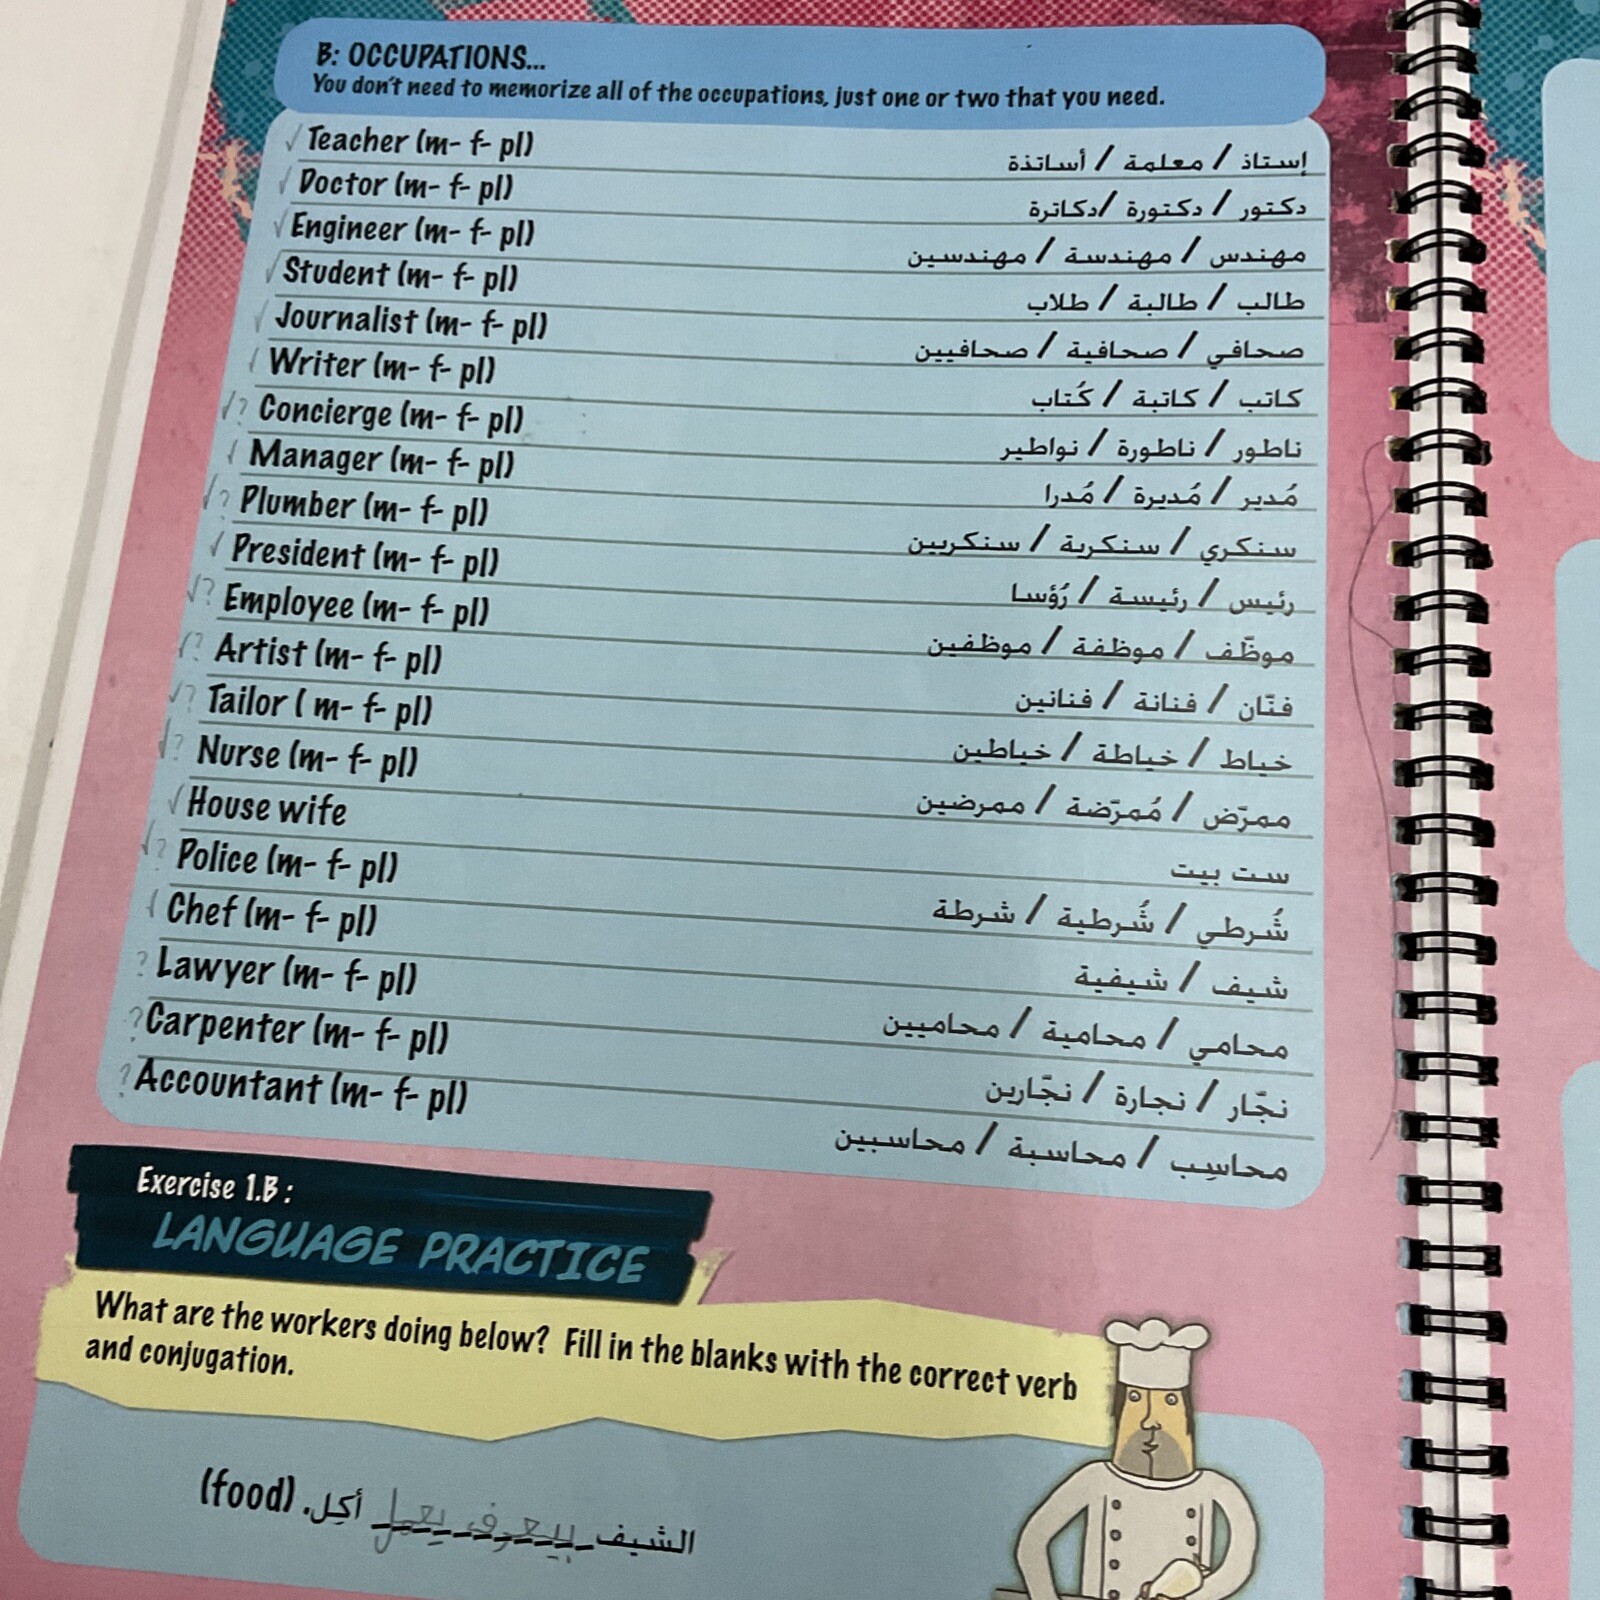 B: OCCUPATIONS...
You don't need to memorize all of the occupations, just one or two that you need.
√ Teacher (m- f- pl) إستاذ / معلمة / أساتذة
√ Doctor (m- f- pl) دكتور / دكتورة /دكاترة
√ Engineer (m- f- pl) مهندس / مهندسة / مهندسين
√ Student (m- f- pl) طالب / طالبة / طلاب
√ Journalist (m- f- pl) صحافي / صحافية / صحافيين
√ Writer (m- f- pl) كاتب / كاتبة / كُتاب
√? Concierge (m- f- pl) ناطور / ناطورة / نواطير
√ Manager (m- f- pl) مُدير / مُديرة / مُدرا
√? Plumber (m- f- pl) سنكري / سنكرية / سنكريين
√ President (m- f- pl) رئيس / رئيسة / رُؤسا
√? Employee (m- f- pl) موظّف / موظفة / موظفين
√? Artist (m- f- pl) فنّان / فنانة / فنانين
√? Tailor ( m- f- pl) خياط / خياطة / خياطين
√? Nurse (m- f- pl) ممرّض / مُمرّضة / ممرضين
√ House wife ست بيت
√? Police (m- f- pl) شُرطي / شُرطية / شرطة
√ Chef (m- f- pl) شيف / شيفية
? Lawyer (m- f- pl) محامي / محامية / محاميين
? Carpenter (m- f- pl) نجّار / نجارة / نجّارين
? Accountant (m- f- pl) محاسِب / محاسبة / محاسبين
Exercise 1.B :
LANGUAGE PRACTICE
What are the workers doing below? Fill in the blanks with the correct verb
and conjugation.
الشيف بيعرف يعمل أكِل. (food)